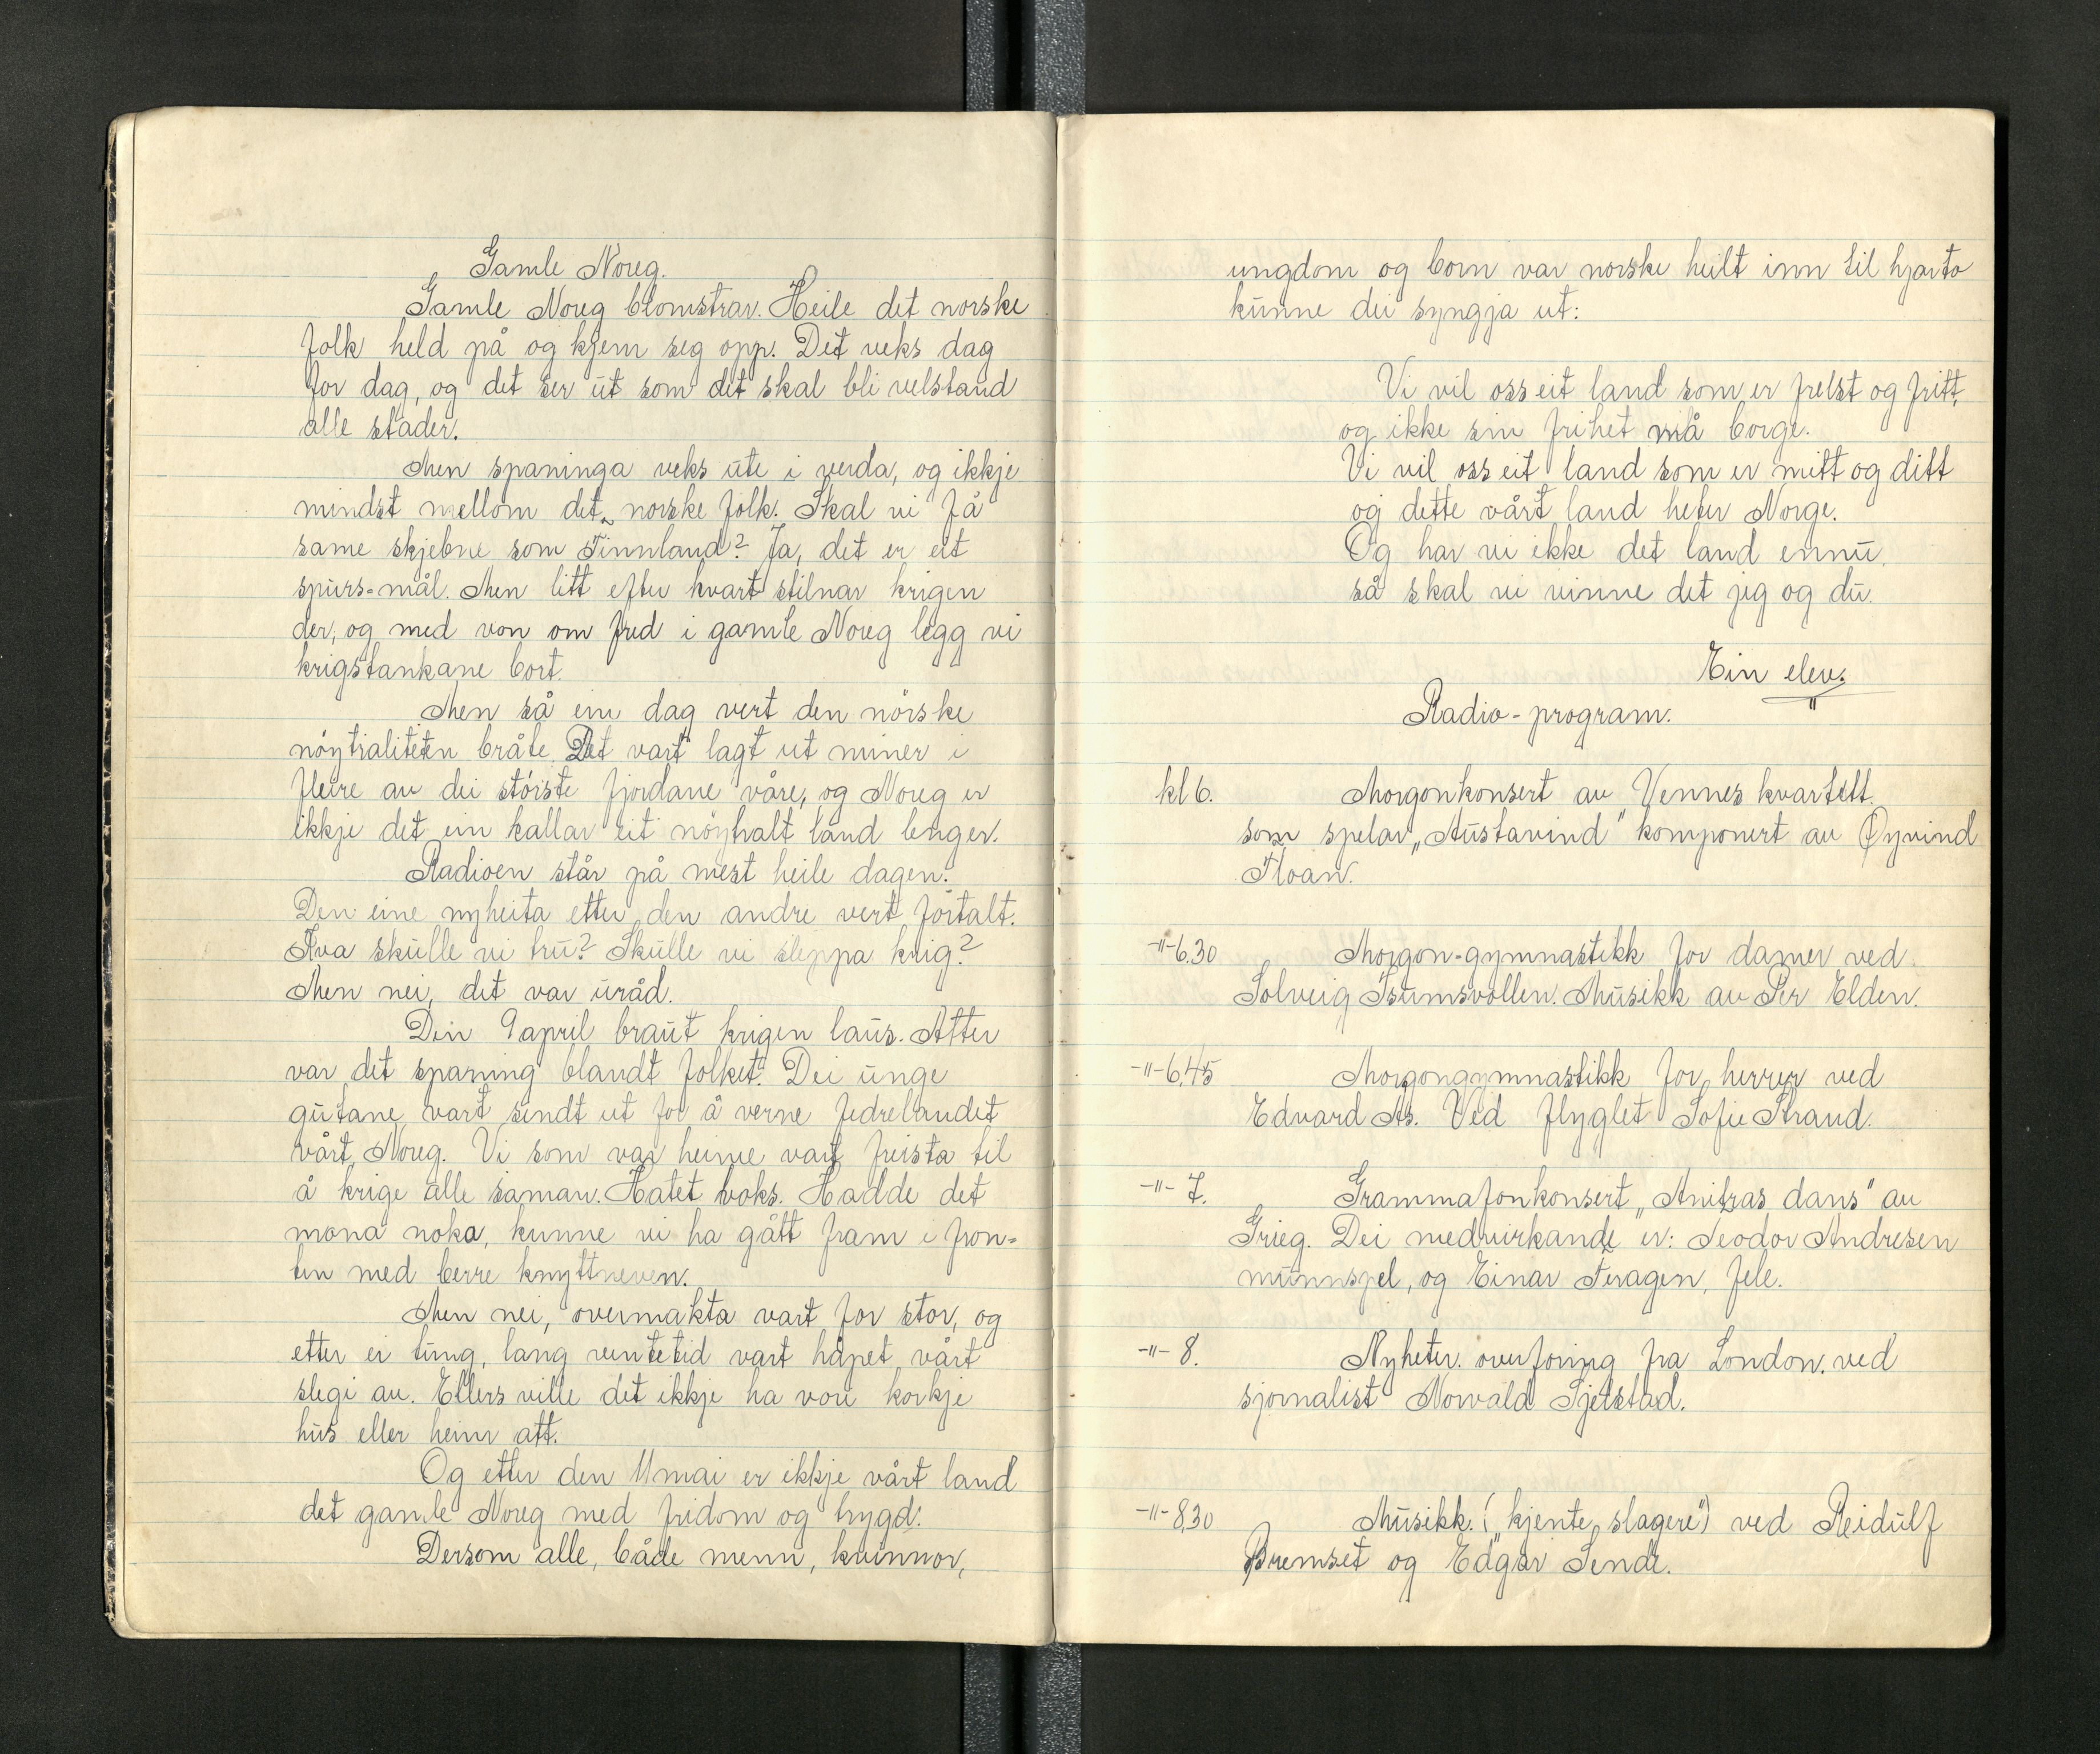 Gamle Noreg.
Gamle Noreg blomstrar. Heile det norske
folk held på og kjem seg opp. Det veks dag
for dag, og det ser ut som det skal bli velstand
alle stader.
Men spaninga veks ute i verda, og ikkje
mindst mellom det norske folk. Skal vi få
same skjebne som Finnland? Ja, det er eit
spurs-mål. Men litt efter kvart stilnar krigen
der, og med von om fred i gamle Noreg legg vi
krigstankane bort.
Men så ein dag vert den norske
nöytraliteten bråte. Det vart lagt ut miner i
fleire av dei störste fjordane våre, og Noreg er
ikkje det ein kallar eit nöytralt land lenger.
Radioen står på mest heile dagen.
Den eine nyheita etter den andre vert fortalt.
Kva skulle vi tru? Skulle vi sleppa krig?
Men nei, det var uråd.
Den 9 april braut krigen laus. Atter
var det spaning blandt folket. Dei unge
gutane vart sendt ut for å verne fedrelandet
vårt, Noreg. Vi som var heime vart freista til
å krige alle saman. Hatet voks. Hadde det
mona noka, kunne vi ha gått fram i fron-
ten med berre knyttneven.
Men nei, overmakta vart for stor, og
etter ei tung, lang ventetid vart håpet vårt
slegi av. Ellers ville det ikkje ha vori korkje
hus eller heim att.
Og etter den 11 mai er ikkje vårt land
det gamle Noreg med fridom og trygd.
Dersom alle, både menn, kvinnor,
ungdom og born var norske heilt inn til hjarto
kunne dei syngja ut:
Vi vil oss eit land som er frelst og fritt,
og ikke sin frihet må borge.
Vi vil oss eit land som er mitt og ditt
og dette vårt land heter Norge.
Og har vi ikke det land ennu,
så skal vi vinne det jeg og du.
Ein elev.
Radio-program.
kl 6. Morgonkonsert av Vennes kvartett.
som spelar „Austavind" komponert av Öyvind
Floan.
-"- 6.30 Morgon-gymnastikk for damer ved
Solveig Isumsvollen. Musikk av Per Elden.
-"- 6.45 Morgongymnastikk for herrer ved
Edvard As. Ved flyglet Sofie Strand.
-"- 7. Grammafonkonsert „Anitras dans" av
Grieg. Dei medvirkande er: Teodor Andresen
munnspel, og Einar Teragen, fele.
-"- 8. Nyheter. overforing fra London. ved
sjornalist Norvald Tjelstad.
-"- 8.30 Musikk. („kjente slagere") ved Reidulf
Bremset og Edgar Sende.